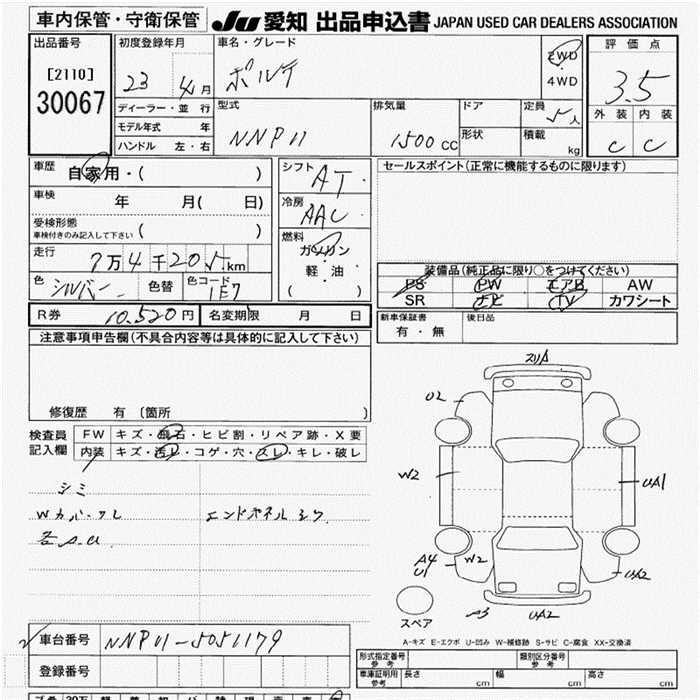 車内保管・守衛保管 JU 愛知 出品申込書 JAPAN USED CAR DEALERS ASSOCIATION
出品番号 初度登録年月 車名・グレード 2WD 評価点
[2110] 23 4月 ポルテ 4WD 3.5
30067 ディーラー・並行 型式 排気量 ドア 定員 5人 外装 内装
モデル年式 年 NNP11 1500cc 形状 積載 C C
ハンドル 左・右 kg
車歴 自家用・( ) シフト AT セールスポイント(正常に機能するものに限ります)
車検 年 月( 日) 冷房 AAC
受検形態
車検付きのみ記入して下さい ( ) 燃料 ガソリン
走行 7万4千205km 軽油
色 シルバー 色替 色コード 1E7 ( )
装備品(純正品に限り○をつけてください)
PS PW エアB AW
SR ナビ TV カワシート
R券 10,520円 名変期限 月 日 新車保証書 有・無 後日品
注意事項申告欄(不具合内容等は具体的に記入して下さい)
修復歴 有 (箇所 )
検査員 FW キズ・飛石・ヒビ割・リペア跡・X要
記入欄 内装 キズ・汚レ・コゲ・穴・スレ・キレ・破レ
シミ
Wカバーワレ エンドパネルシワ
スリA
U2
W2
UA1
A4
U1
W2
UA2
A3
UA2
スペア
A-キズ E-エクボ U-凹み W-補修跡 S-サビ C-腐食 XX-交換済
車台番号 NNP11-5051179
登録番号
形式指定番号 参考 類別区分番号 参考
車庫証明用 参考 長さ cm 幅 cm 高さ cm